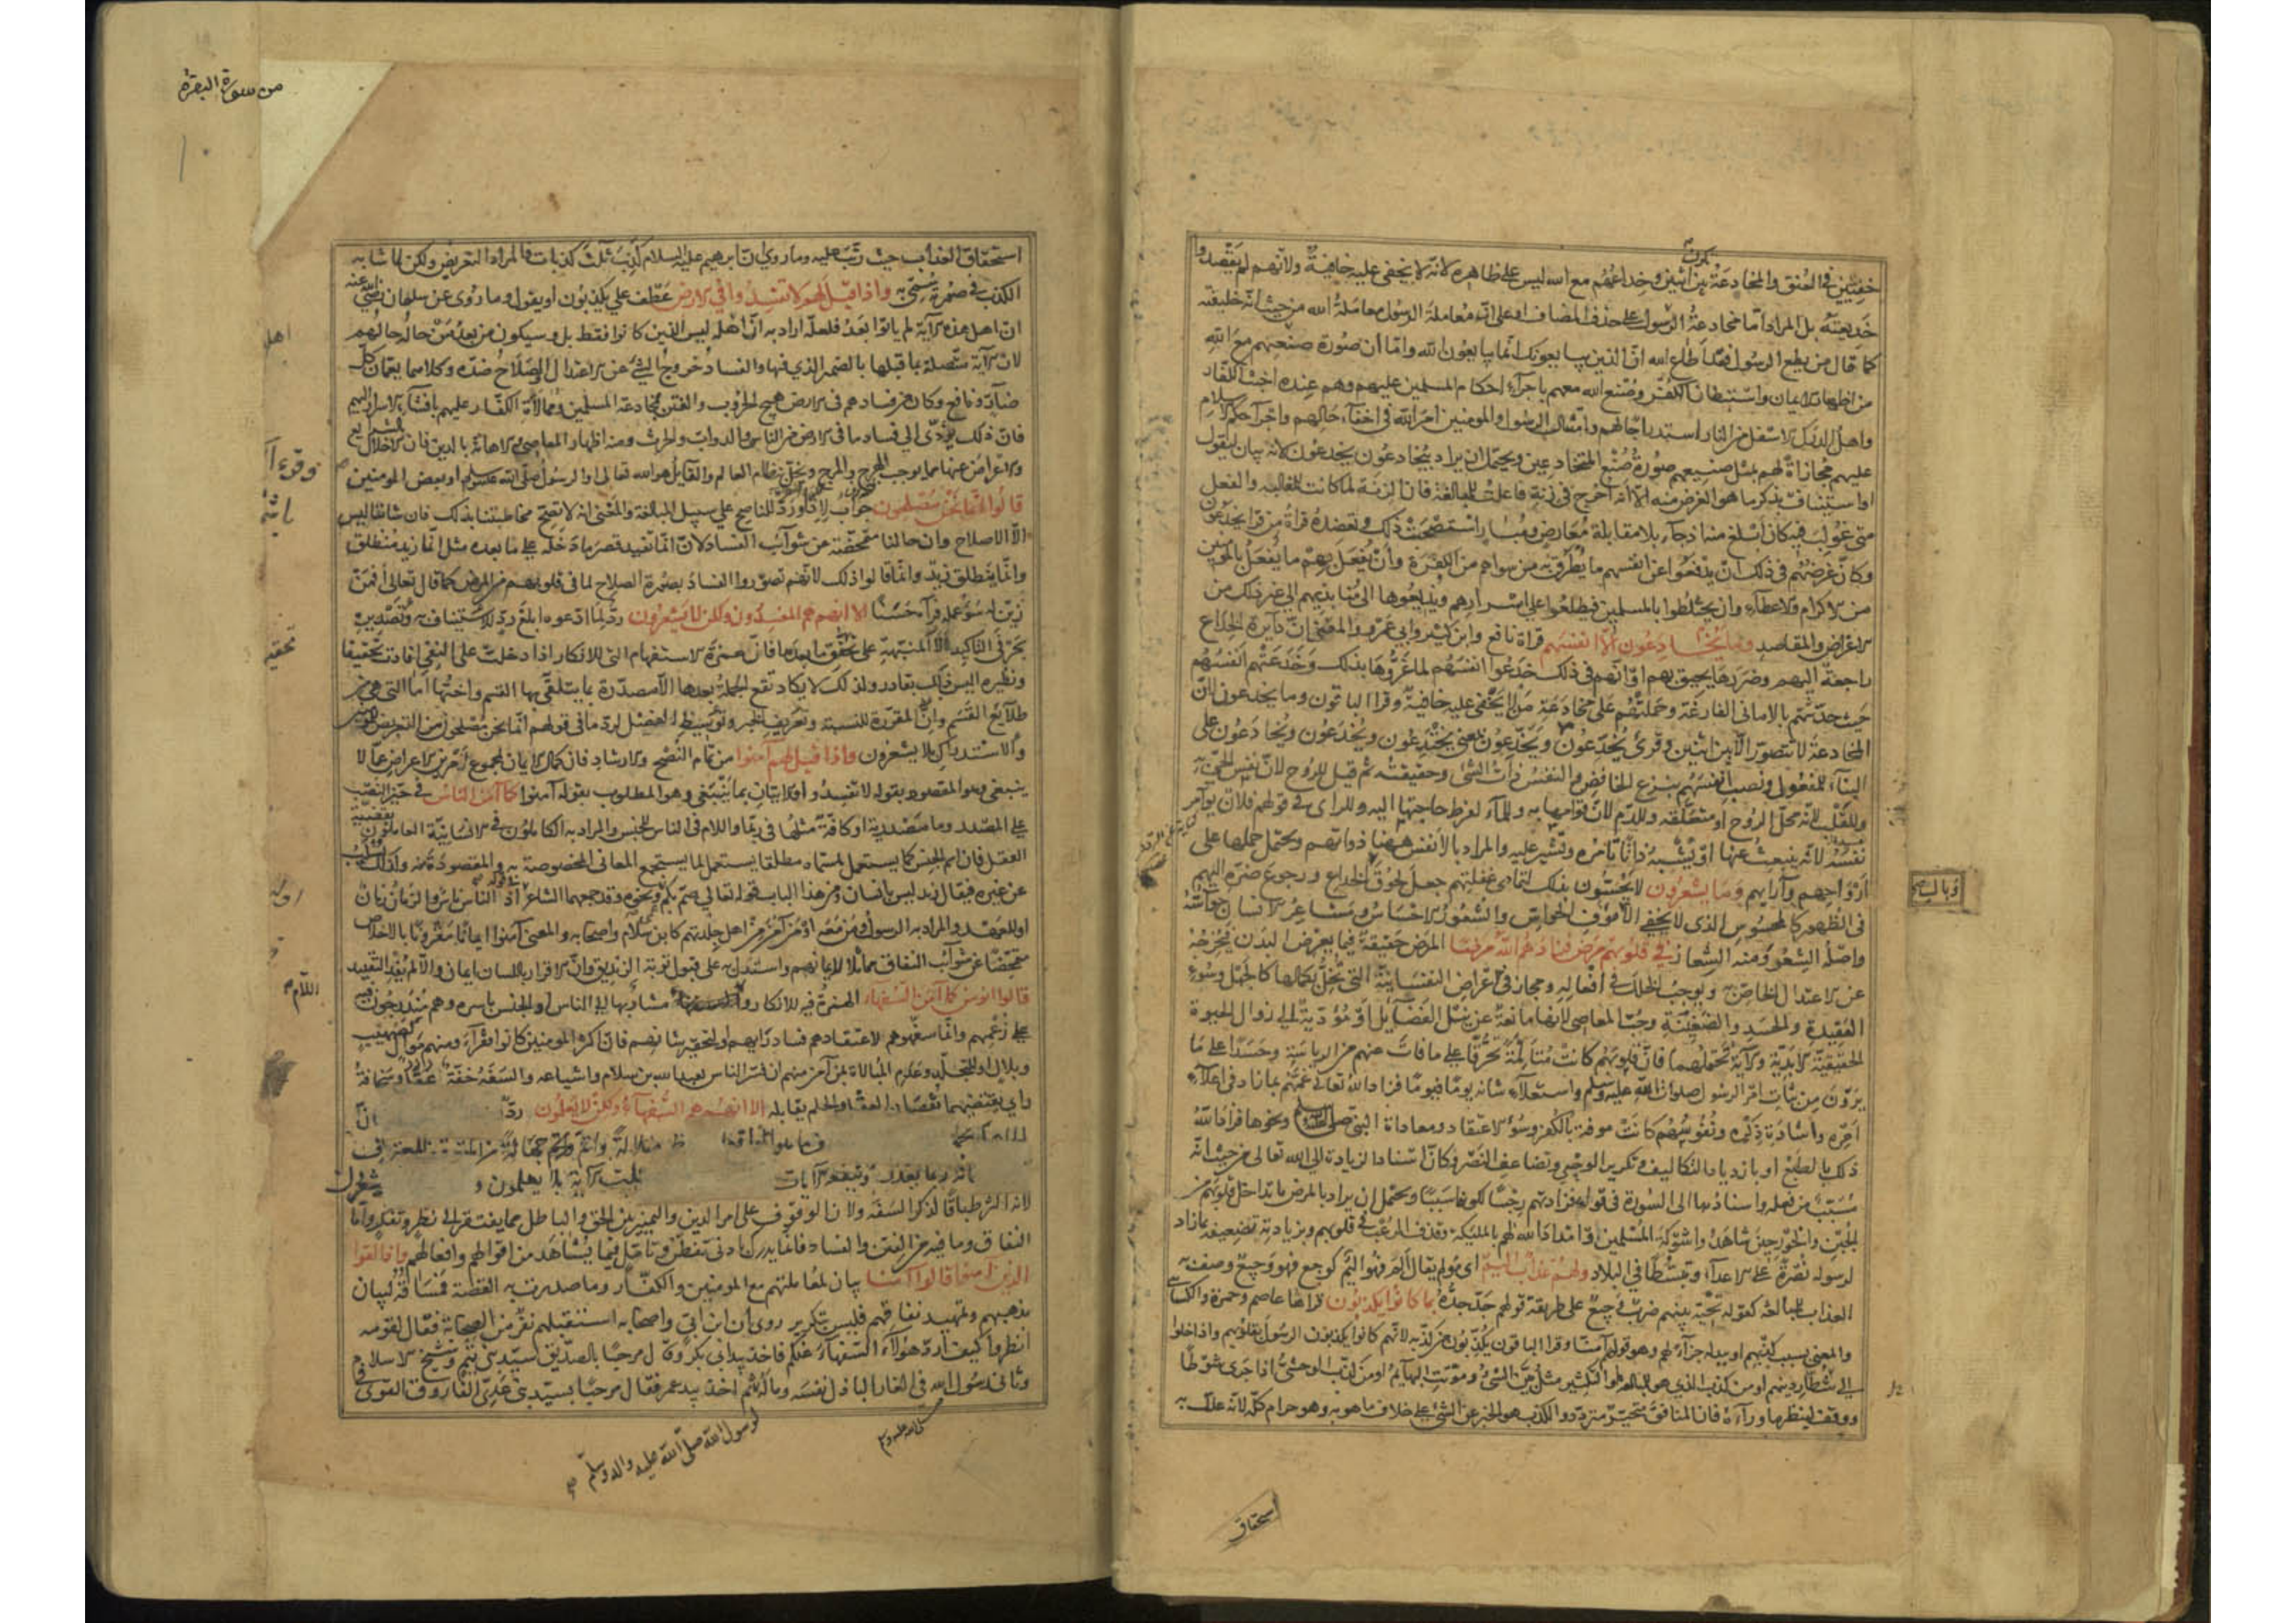 خفيين في العنق والمخادعة تكون بين اثنين وخداعهم مع الله ليس على ظاهره لانه لا يخفى عليه خافية ولانهم لم يقصدوا
خديعته بل المراد اما مخادعة الرسول على حذف المضاف او على ان معاملة الرسول معاملة الله من حيث انه خليفته
كما قال من يطع الرسول فقد اطاع الله ان الذين يبايعونك انما يبايعون الله واما ان صورة صنعهم مع الله
من اظهار الايمان واستبطان الكفر وصنع الله معهم باجراء احكام المسلمين عليهم وهم عنده اخبث الكفار
واهل الدرك الاسفل من النار استدراجا لهم وامتثال الرسول والمومنين امر الله في اخفاء حالهم واجراء حكم الاسلام
عليهم مجازاة لهم بمثل صنيعهم صورة صنع المتخادعين ويحتمل ان يراد بيخادعون يخدعون لانه بيان ليقول
او استيناف بذكر ما هو الغرض منه الا انه اخرج في زنة فاعلت للمبالغة فان الزنة لما كانت للمغالبة والفعل
متى غولب فيه كان ابلغ منه اذا جاء بلا مقابلة معارض ومبار استصحبت ذلك ويعضده قراة من قرا يخدعون
وكان غرضهم في ذلك ان يدفعوا عن انفسهم ما يطرق به من سواهم من الكفرة وان يفعل بهم ما يفعل بالمومنين
من الاكرام والاعطاء وان يختلطوا بالمسلمين فيطلعوا على اسرارهم ويذيعوها الى منابذيهم الى غير ذلك من
الاغراض والمقاصد وما يخادعون الا انفسهم قراة نافع وابن كثير وابي عمرو والمعنى ان دايرة الخداع
راجعة اليهم وضررها يحيق بهم او انهم في ذلك خدعوا انفسهم لما غروها بذلك وخدعتهم انفسهم
حيث حدثتهم بالاماني الفارغة وحملتهم على مخادعة من لا يخفى عليه خافية وقرا الباقون وما يخدعون لان
المخادعة لا تتصور الا بين اثنين وقرئ يخدعون ويخدعون بمعنى يختدعون ويخدعون ويخادعون على
البناء للمفعول ونصب انفسهم بنزع الخافض والنفس ذات الشئ وحقيقته ثم قيل للروح لان نفس الحي به
وللقلب لانه محل الروح او متعلقه وللدم لان قوامها به وللماء لفرط حاجتها اليه وللراى في قولهم فلان يوامر
نفسه لانه ينبعث عنها او يشبه ذاتا تامره وتشير عليه والمراد بالانفس ههنا ذواتهم ويحتمل حملها على
ارواحهم وآرايهم وما يشعرون لا يحسون بذلك لتمادى غفلتهم جعل لحوق الخداع ورجوع ضرره اليهم
في الظهور كالمحسوس الذى لا يخفى الا على ماوف الحواس والشعور الاحساس ومشاعر الانسان حواسه
واصله الشعر ومنه الشعار في قلوبهم مرض فزادهم الله مرضا المرض حقيقة فيما يعرض البدن فيخرجه
عن الاعتدال الخاص به ويوجب الخلل في افعاله ومجاز في الاعراض النفسانية التى تخل بكمالها كالجهل وسوء
العقيدة والحسد والضغينة وحب المعاصى لانها مانعة عن نيل الفضايل او مؤدية الى زوال الحيوة
الحقيقية الابدية والآية تحتملهما فان قلوبهم كانت متالمة تحرقا على ما فات عنهم من الرياسة وحسدا على ما
يرون من ثبات امر الرسول صلوات الله عليه وسلم واستعلاء شانه يوما فيوما فزاد الله تعالى غمهم بما زاد في اعلاء
امره واشادة ذكره ونفوسهم كانت موفة بالكفر وسوء الاعتقاد ومعاداة النبي ونحوها فزاد الله
ذلك بالطبع او بازدياد التكاليف وتكرير الوحي وتضاعف النصر فكان اسناد الزيادة الى الله تعالى من حيث انه
مسبب من فعله واسنادها الى السورة في قوله فزادتهم رجسا لكونها سببا ويحتمل ان يراد بالمرض ما تداخل قلوبهم من
الجبن والخور حين شاهدوا شوكة المسلمين وامداد الله لهم بالمليكة وقذف الرعب في قلوبهم وبزيادته تضعيفه بما زاد
لرسوله نصرة على الاعداء وتبسطا في البلاد ولهم عذاب اليم اى مؤلم يقال الم فهو اليم كوجع فهو وجيع وصف به
العذاب للمبالغة كقوله تحية بينهم ضرب وجيع على طريقة قولهم جد جده بما كانوا يكذبون قراها عاصم وحمزة والكسائى
والمعنى بسبب كذبهم او ببدله جزاء لهم وهو قولهم آمنا وقرا الباقون يكذبون من كذبه لانهم كانوا يكذبون الرسول بقلوبهم واذا خلوا
الى شطار دينهم او من كذب الذى هو للمبالغة او للتكثير مثل بين الشئ وموتت البهايم او من كذب الوحشى اذا جرى شوطا
ووقف لينظر ما وراءه فان المنافق متحير متردد والكذب هو الخبر عن الشئ على خلاف ما هو به وهو حرام كله لانه علل به
استحقاق
من سورة البقرة
استحقاق العذاب حيث رتب عليه وما روي ان ابرهيم عليه السلام كذب ثلث كذبات فالمراد التعريض ولكن لما شابه
الكذب في صورته سمي به واذا قيل لهم لا تفسدوا في الارض عطف على يكذبون او يقول وما روى عن سلمان رضي الله عنه
ان اهل هذه الآية لم ياتوا بعد فلعله اراد به ان اهله ليس الذين كانوا فقط بل وسيكون من بعد من حاله حالهم
لان الآية متصلة بما قبلها بالضمير الذي فيها والفساد خروج الشئ عن الاعتدال والصلاح ضده وكلاهما يعمان كل
ضار ونافع وكان من فسادهم في الارض هيج الحروب والفتن بمخادعة المسلمين وممالاة الكفار عليهم بافشاء الاسرار اليهم
فان ذلك يؤدى الى فساد ما في الارض من الناس والدواب والحرث ومنه اظهار المعاصى والاهانة بالدين فان الاخلال بالشرايع
والاعراض عنها مما يوجب الهرج والمرج ويخل بنظام العالم والقايل هو الله تعالى او الرسول صلى الله عليه وسلم او بعض المومنين
قالوا انما نحن مصلحون جواب لاذا ورد للناصح على سبيل المبالغة والمعنى انه لا تصح مخاطبتنا بذلك فان شاننا ليس
الا الاصلاح وان حالنا متمحضة عن شوائب الفساد لان انما تفيد قصر ما دخله على ما بعده مثل انما زيد منطلق
وانما ينطلق زيد وانما قالوا ذلك لانهم تصوروا الفساد بصورة الصلاح لما في قلوبهم من المرض كما قال تعالى افمن
زين له سوء عمله فرآه حسنا الا انهم هم المفسدون ولكن لا يشعرون رد لما ادعوه ابلغ رد للاستيناف به وتصديره
بحرفي التاكيد الا المنبهة على تحقق ما بعدها فان همزة الاستفهام التى للانكار اذا دخلت على النفى افادت تحقيقا
ونظيره اليس ذلك بقادر ولذلك لا يكاد تقع الجملة بعدها الا مصدرة بما يتلقى بها القسم واختها اما التى هى من
طلايع القسم وان المقررة للنسبة وتعريف الخبر وتوسيط الفصل لرد ما في قولهم انما نحن مصلحون من التعريض للمومنين
والاستدراك بلا يشعرون واذا قيل لهم آمنوا من تمام النصح والارشاد فان كمال الايمان بمجموع امرين الاعراض عما لا
ينبغى وهو المقصود بقوله لا تفسدوا والاتيان بما ينبغى وهو المطلوب بقوله آمنوا كما آمن الناس في حيز النصب
على المصدر وما مصدرية او كافة مثلها في ربما واللام في الناس للجنس والمراد به الكاملون في الانسانية العاملون بقضية
العقل فان اسم الجنس كما يستعمل لمسماه مطلقا يستعمل لما يستجمع المعانى المخصوصة به والمقصودة منه ولذلك يسلب
عن غيره فيقال زيد ليس بانسان ومن هذا الباب قوله تعالى صم بكم ونحوه وقد جمعهما الشاعر في قوله اذ الناس ناس والزمان زمان
او للعهد والمراد به الرسول ومن معه او من آمن من اهل جلدتهم كابن سلام واصحابه والمعنى آمنوا ايمانا مقرونا بالاخلاص
متمحضا عن شوائب النفاق مماثلا لايمانهم واستدل به على قبول توبة الزنديق وان الاقرار باللسان ايمان والا لم يفد التقييد
قالوا انؤمن كما آمن السفهاء الهمزة فيه للانكار واللام مشار بها الى الناس او الجنس باسره وهم مندرجون فيه
على زعمهم وانما سفهوهم لاعتقادهم فساد رايهم او لتحقير شانهم فان اكثر المومنين كانوا فقراء ومنهم موال كصهيب
وبلال او للتجلد وعدم المبالاة بمن آمن منهم ان فسر الناس بعبد الله بن سلام واشياعه والسفه خفة وسخافة
راي يقتضيهما نقصان العقل والحلم يقابله الا انهم هم السفهاء ولكن لا يعلمون رد
لانه اكثر طباقا لذكر السفه ولان الوقوف على امر الدين والتمييز بين الحق والباطل مما يفتقر الى نظر وتفكر واما
النفاق وما فيه من الفتن والفساد فانما يدرك بادنى تفطن وتامل فيما يشاهد من اقوالهم وافعالهم واذا لقوا
الذين آمنوا قالوا آمنا بيان لمعاملتهم مع المومنين والكفار وما صدرت به القصة فمساقه لبيان
مذهبهم وتمهيد نفاقهم فليس بتكرير روى ان ابن ابي واصحابه استقبلهم نفر من الصحابة فقال لقومه
انظروا كيف ارد هؤلاء السفهاء عنكم فاخذ بيد ابي بكر وقال مرحبا بالصديق سيد بني تيم وشيخ الاسلام
وثاني رسول الله في الغار الباذل نفسه وماله ثم اخذ بيد عمر فقال مرحبا بسيد بني عدي الفاروق القوى في
لرسول الله صلى الله عليه وآله وسلم